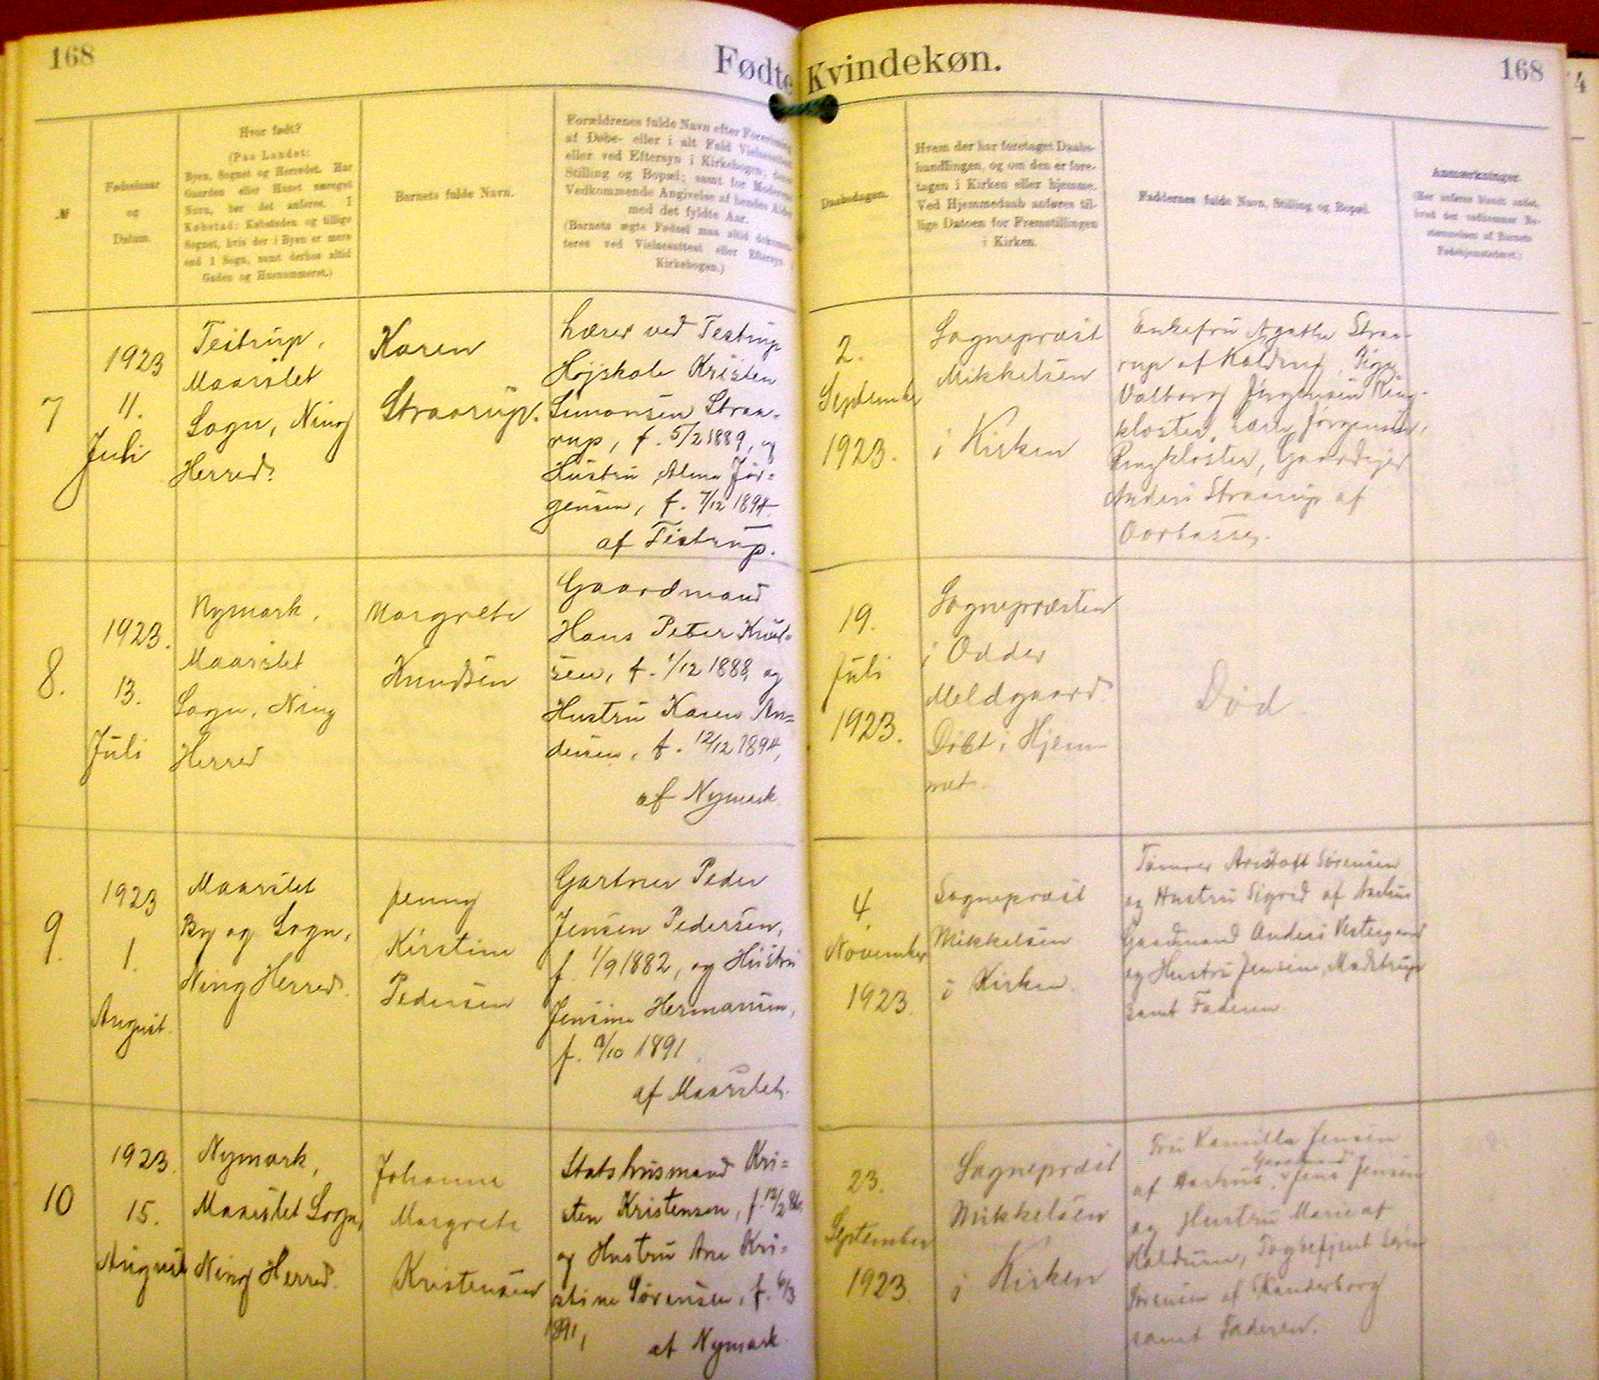 168
Fødte Kvindekøn.
168
4
№
Fødselsaar
og
Datum.
Hvor født?
(Paa Landet:
Byen, Sognet og Herredet. Har
Gaarden eller Huset særeget
Navn, bør det anføres. I
Købstad: Købstaden og tillige
Sognet, hvis der i Byen er mere
end 1 Sogn, samt derhos altid
Gaden og Husnummeret.)
Barnets fulde Navn.
Forældrenes fulde Navn efter
af Døbe- eller i alt Fald
eller ved Eftersyn i Kirkebogen;
Stilling og Bopæl; samt for
Vedkommende Angivelse af hendes
med det fyldte Aar.
(Barnets ægte Fødsel maa altid
teres ved Vielsesattest eller Eftersyn i
Kirkebogen.)
Daabsdagen.
Hvem der har foretaget Daabs-
handlingen, og om den er fore-
tagen i Kirken eller hjemme.
Ved Hjemmedaab anføres til-
lige Datoen for Fremstillingen
i Kirken.
Faddernes fulde Navn, Stilling og Bopæl.
Anmærkninger.
(Her anføres blandt andet,
7
1923
11.
Juli
Testrup,
Maarslet
Sogn, Ning
Herred.
Karen
Straarup.
Lærer ved Testrup
Højskole Kristen
Simonsen Straa-
rup, f. 5/2 1889, og
Hustru Alma Jør-
gensen, f. 7/12 1894.
af Testrup.
2.
September
1923.
Sognepræst
Mikkelsen
i Kirken
Enkefru Agathe Straa-
rup af Koldrup, Pige
Valborg Jørgensen Ring-
kloster, Carl Jørgensen,
Ringkloster, Gaardejer
Anders Straarup af
8.
1923.
13.
Juli
Nymark,
Maarslet
Sogn, Ning
Herred
Margrete
Knudsen
Gaardmand
Hans Peter Knud-
sen, f. 1/12 1888, og
Hustru Karen An-
dersen, f. 12/12 1894,
af Nymark
19.
Juli
1923.
Sognepræsten
i Odder
Meldgaard
Døbt i Hjem-
met.
Død.
9.
1923
1.
August.
Maarslet
By og Sogn,
Ning Herred.
Jenny
Kirstine
Pedersen
Gartner Peder
Jensen Pedersen,
f. 1/9 1882, og Hustru
Jensine Hermansen,
f. /10 1891
af Maarslet.
4
November
1923.
Sognepræst
Mikkelsen
i Kirken.
Tømrer Sørensen
og Hustru Sigrid af Aarhus
Gaardmand Anders Vestergaard
og Hustru Jensine, Mustrup
samt Faderen
10
1923.
15.
August
Nymark,
Maarslet Sogn,
Ning Herred.
Johanne
Margrete
Kristensen
Statshusmand Kri-
sten Kristensen, f. 12/2 86,
og Hustru Ane Kri-
stine Sørensen, f. 6/3
1891,
af Nymark
23.
September
1923.
Sognepræst
Mikkelsen
i Kirken
Fru Kamilla Jensen
af Aarhus, Gaardmand Jens Jensen
og Hustru Marie af
Sørensen af Skanderborg
samt Faderen.